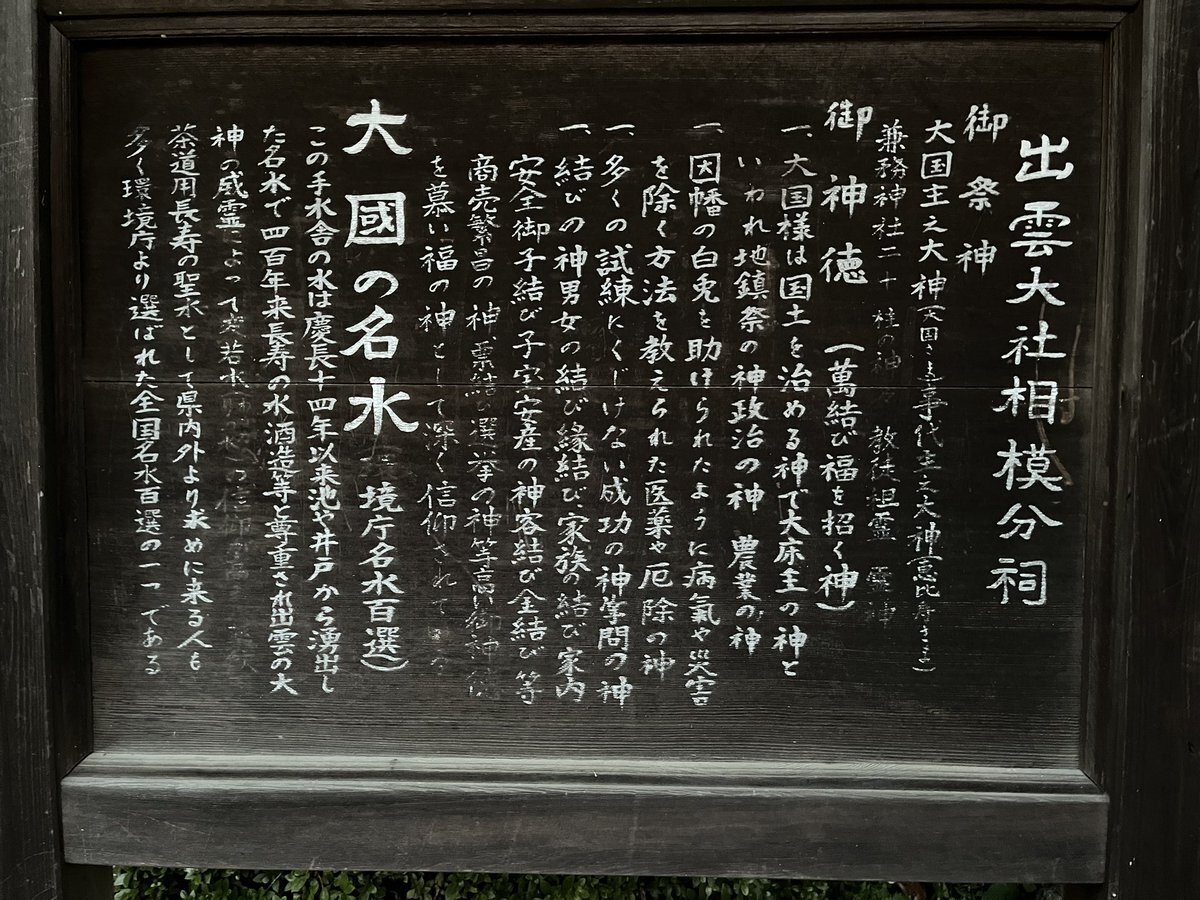 出雲大社相模分祠
御祭神
大国主之大神(大国さま)事代主之大神(恵比寿さま)
兼務神社二十 柱の神 教徒祖霊 霊神
御神徳 (萬結び福を招く神)
一、大国様は国土を治める神で大床主の神と
いわれ地鎮祭の神政治の神 農業の神
一、因幡の白兎を助けられたように病氣や災害
を除く方法を教えられた医薬や厄除の神
一、多くの試練にくじけない成功の神学問の神
一、結びの神男女の結び縁結び、家族の結び家内
安全御子結び子宝安産の神客結び金結び等
商売繁昌の神 票結び選挙の神等高い御神徳
を慕い福の神として深く信仰されて
大國の名水 境庁名水百選)
この手水舎の水は慶長十四年以来池や井戸から湧出し
た名水で四百年来長寿の水酒造等と尊重され出雲の大
神の威霊によって 若水 信仰
茶道用長寿の聖水として県内外より求めに来る人も
多く環境庁より選ばれた全国名水百選の一つである